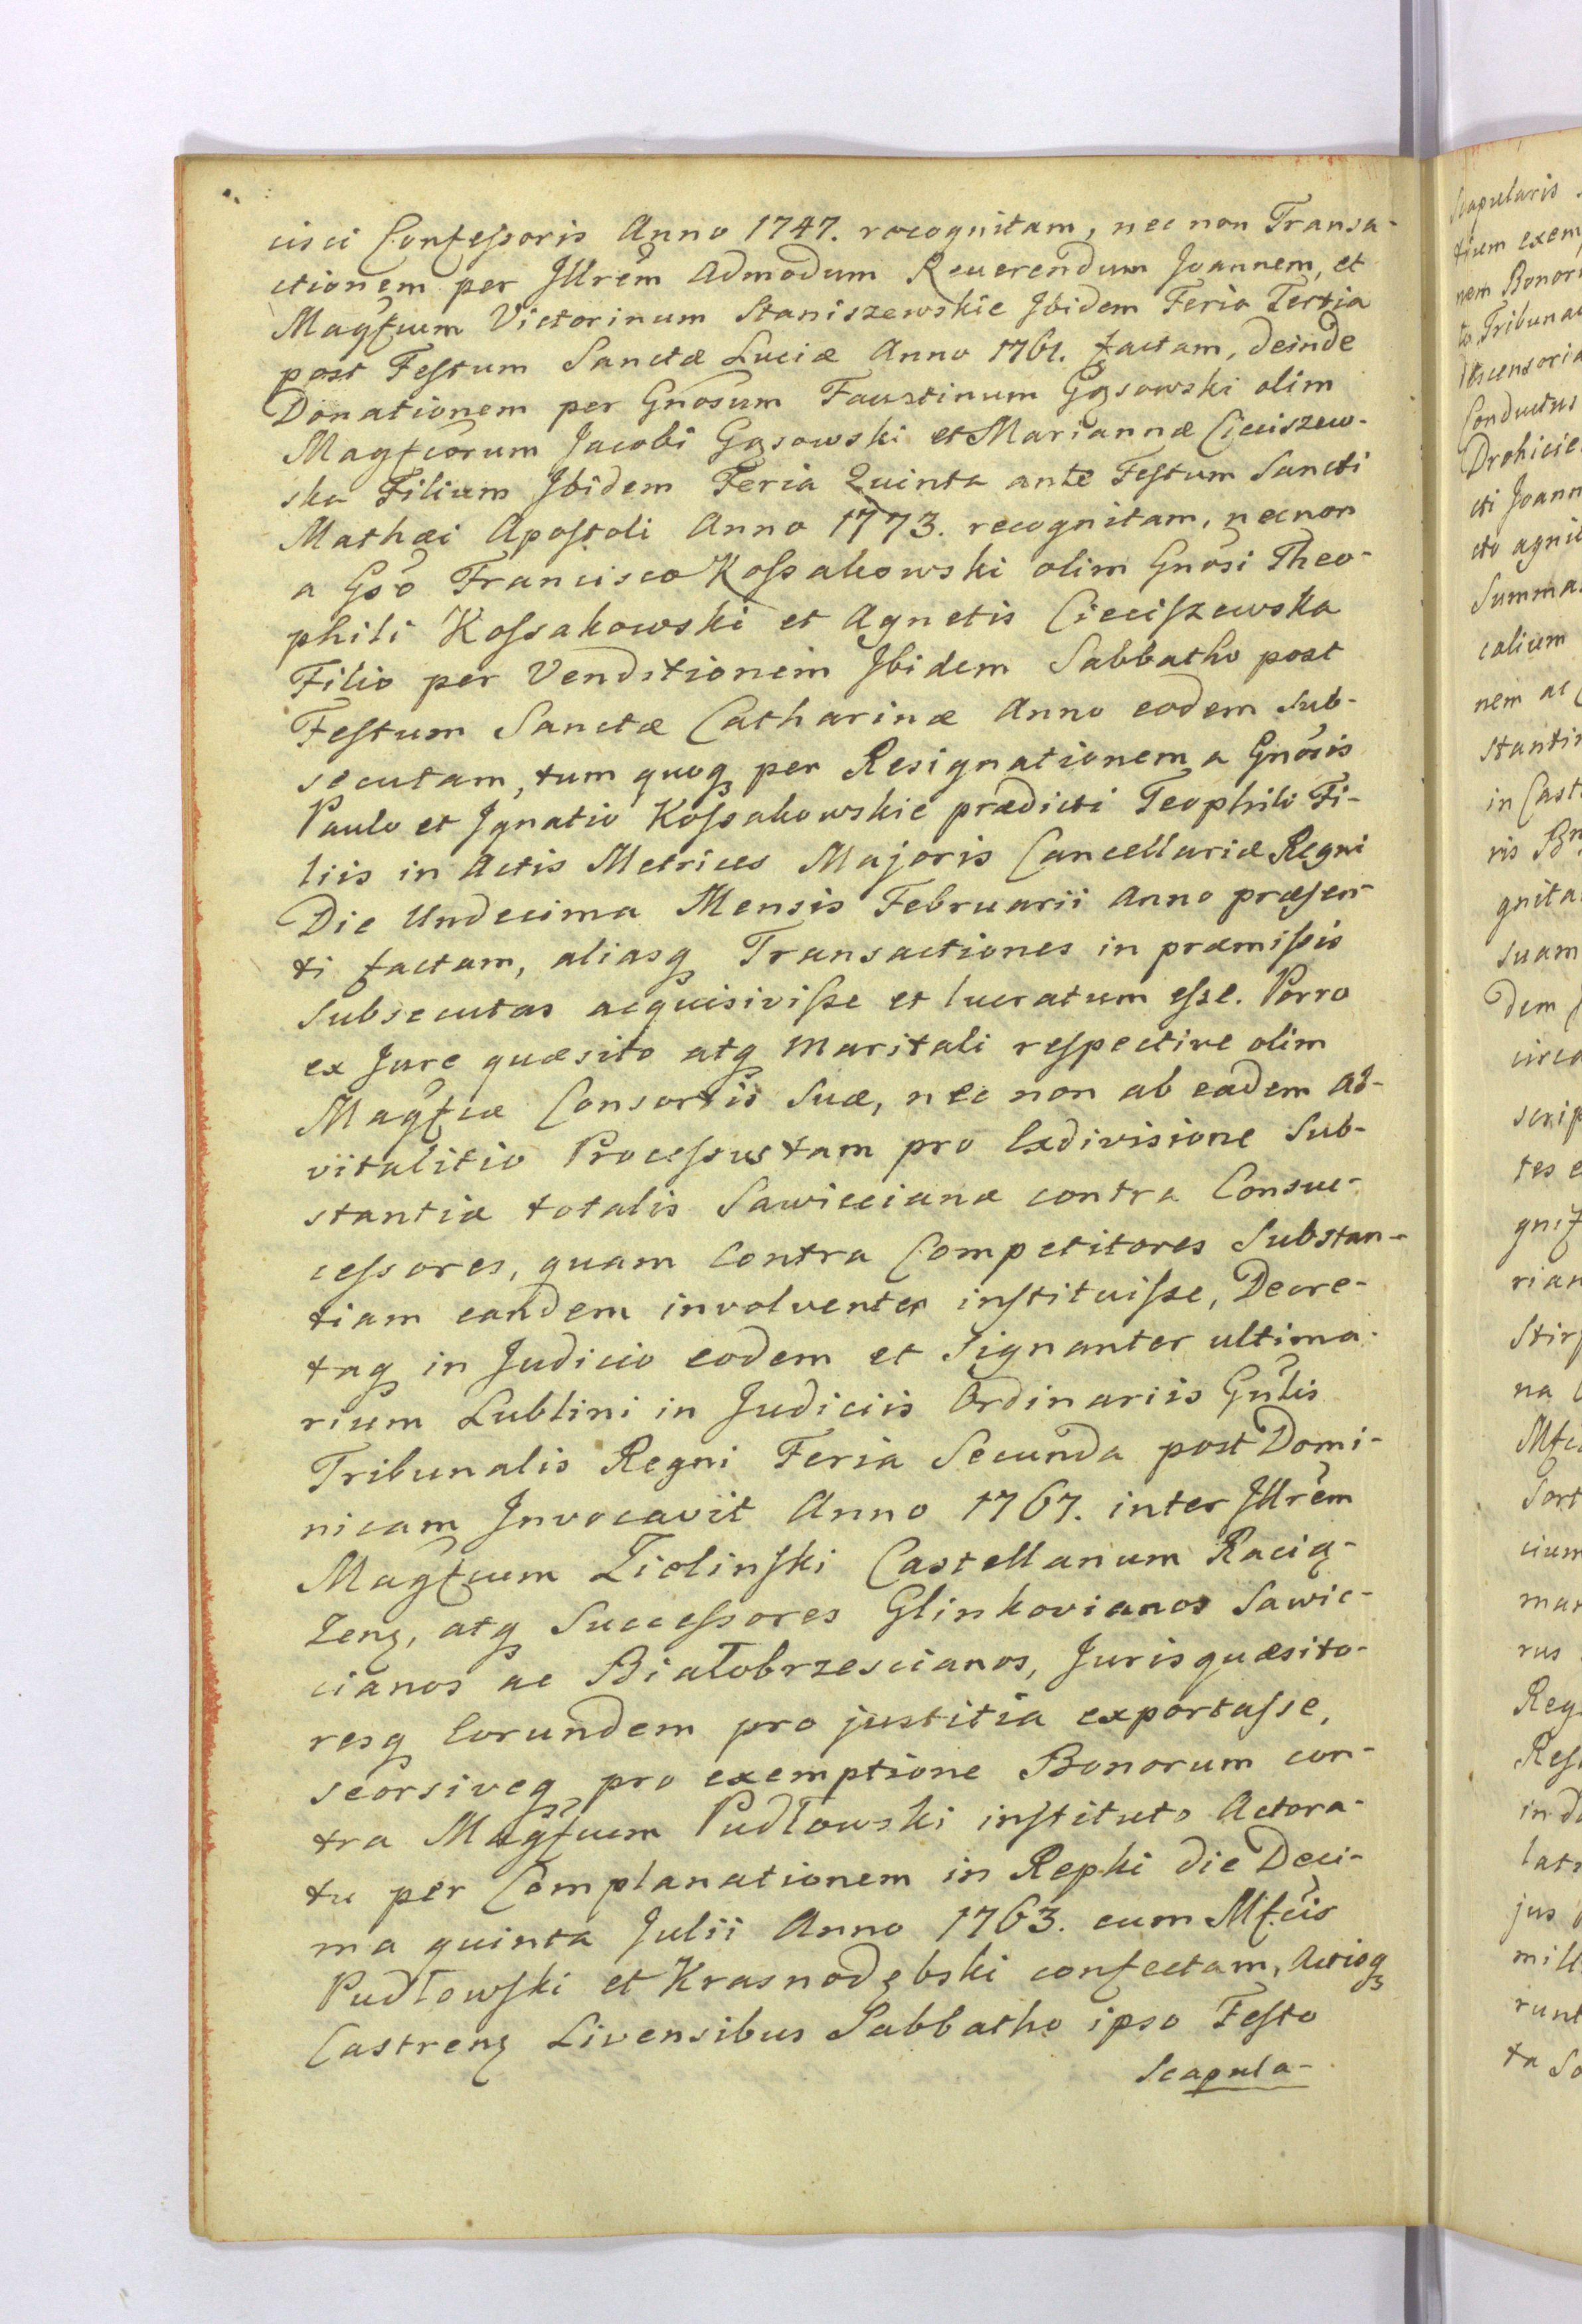 cisci Confeſsoris Anno 1747. recognitam, nec non Transa-
ctionem per Jllrēm Admodum Reuerendum Joannem, et
Magƒcum Victorinum Staniszewskie Jbidem Feria Tertia
post Feſtum Sanctæ Luciæ Anno 1761. factam, deinde
Donationem per Gnōsum Faustinum Gąsowski olim
Magƒcōrum Jacobi Gąsowski et Mariannæ Cieciszew-
ska Filium Jbidem Feria Quinta ante Feſtum Sancti
Mathæi Apoſtoli Anno 1773. recognitam, necnon
a Gsō Francisco Koſsakowski olim Gnōsi Theo-
phili Koſsakowski et Agnetis Cieciſzewska
Filio per Venditionem Jbidem Sabbatho post
Feſtum Sanctæ Catharinæ Anno eodem sub-
secutam, tum quoqꝫ per Resignationem a Gnōsis
Paulo et Jgnatio Koſsakowskie prædicti Teophili Fi-
liis in Actis Metrices Majoris Cancellariæ Regni
Die Undecima Mensis Februarii Anno præſen-
ti factam, aliasqꝫ Transactiones in præmiſsis
subsecutas acquisiviſse et lucratum eſse. Porro
ex Jure quæsito atqꝫ maritali reſpective olim
Magƒcæ Consortis suæ, nec non ab eadem ad-
vitalitio Proceſsus tam pro Exdivisione Sub-
stantiæ totalis Sawiccianæ contra Consuc-
ceſsores, quam contra Competitores Substan-
tiam eandem involventes inſtituiſse, Decre-
taqꝫ in Judicio eodem et signanter ultima-
rium Lublini in Judiciis Ordinariis Gn̄lis
Tribunalis Regni Feria Secunda post Domi-
nicam Jnvocavit Anno 1767. inter Jllrēm
Magƒcum Zielinſki Castellanum Racią-
Zenꝫ, atqꝫ Succeſsores Glinkovianos Sawic-
cianos ac Białobrzescianos, Jurisquæsito-
resqꝫ Eorundem pro justitia exportaſse,
seorsiveqꝫ pro exemptione Bonorum con-
tra Magƒcum Pudłowski inſtituto Actora-
tu per Complanationem in Repki die Deci-
ma quinta Julii Anno 1763. cum Mƒcis
Pudłowſki et Krasnodębski confectam, Actisqꝫ
Castrenꝫ Livensibus Sabbatho ipso Feſto
Scapula-
Scapularis
nem Bonor
to Tribuna
Conductus
Drohicie
cti Joann
Summa
calium
nem ac
stanti
in Cast
gnita
suam
dem
circa
scrip
tes
rian
Stir
na
Sort
cium
mar
rus
Reg
Reſ
in
lat
jus
mill
runt
ta